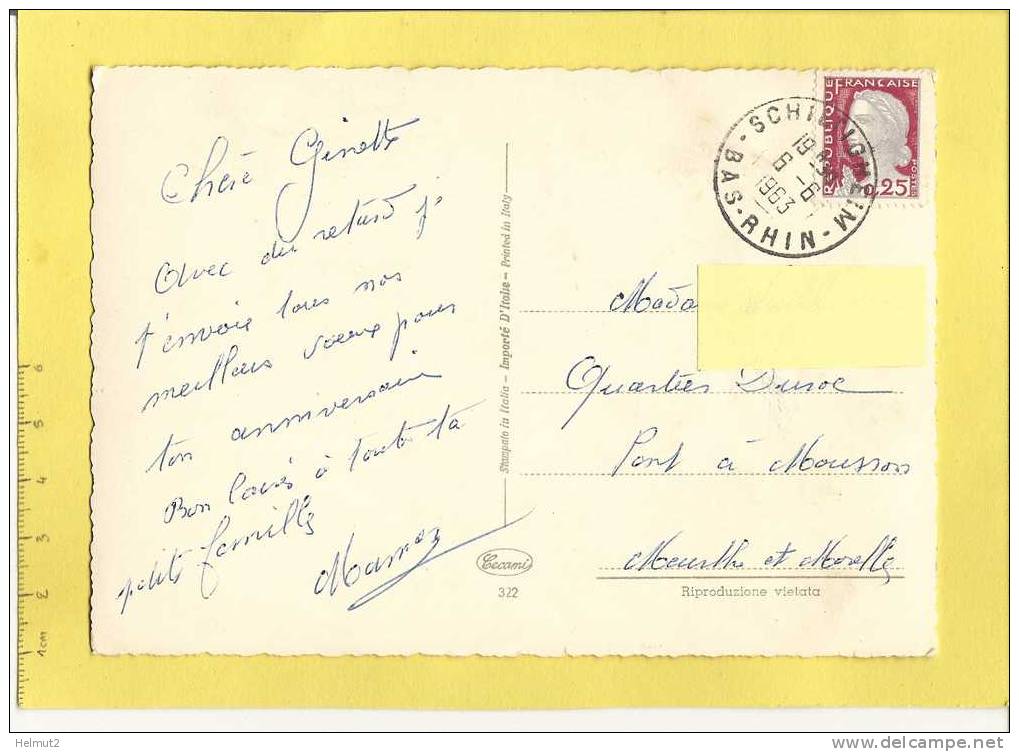 Chère Ginette
Avec du retard j'
t'envoie tous nos
meilleurs voeux pour
ton anniversaire
Bon baisers à toute ta
petite famille
Mada
Quartier Duroc
Pont à Mousson
Meurthe et Moselle
Stampato in Italia - Importé D'Italie - Printed in Italy
Cecami
322
Riproduzione vietata
REPUBLIQUE FRANÇAISE
POSTES
0,25
SCHILTIGHEIM
BAS-RHIN
6 - 6
1963
1cm 2 3 4 5 6
Helmut2
www.delcampe.net